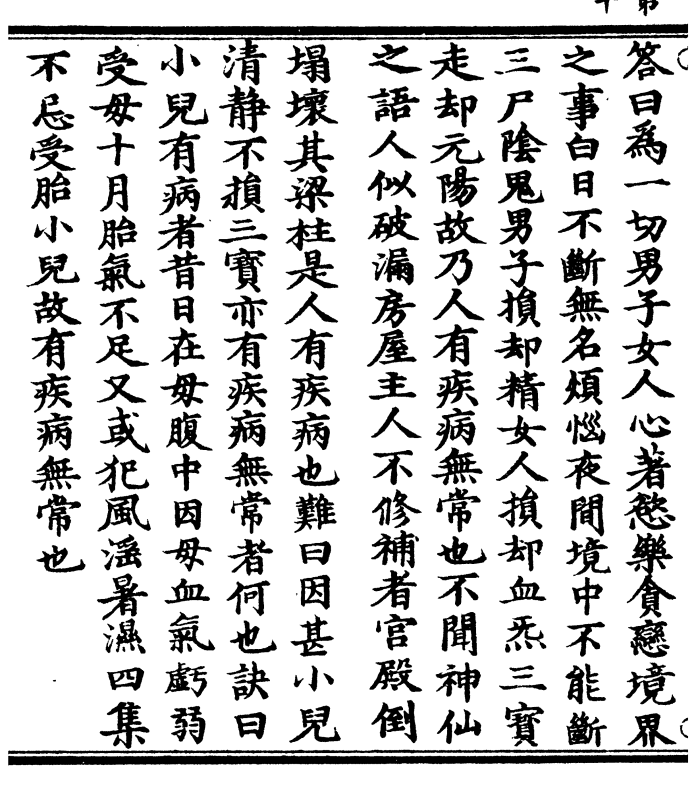 答曰為一切男子女人心著慾樂貪戀境界
之事白日不斷無名煩惱夜間境中不能斷
三尸陰鬼男子損却精女人損却血炁三寶
走却元陽故乃人有疾病無常也不聞神仙
之語人似破漏房屋主人不修補者宫殿倒
塌壞其梁柱是人有疾病也難曰因甚小兒
清静不損三寶亦有疾病無常者何也訣曰
小兒有病者昔日在母腹中因母血氣虧弱
受母十月胎氣不足又或犯風滛暑濕四集
不忌受胎小兒故有疾病無常也